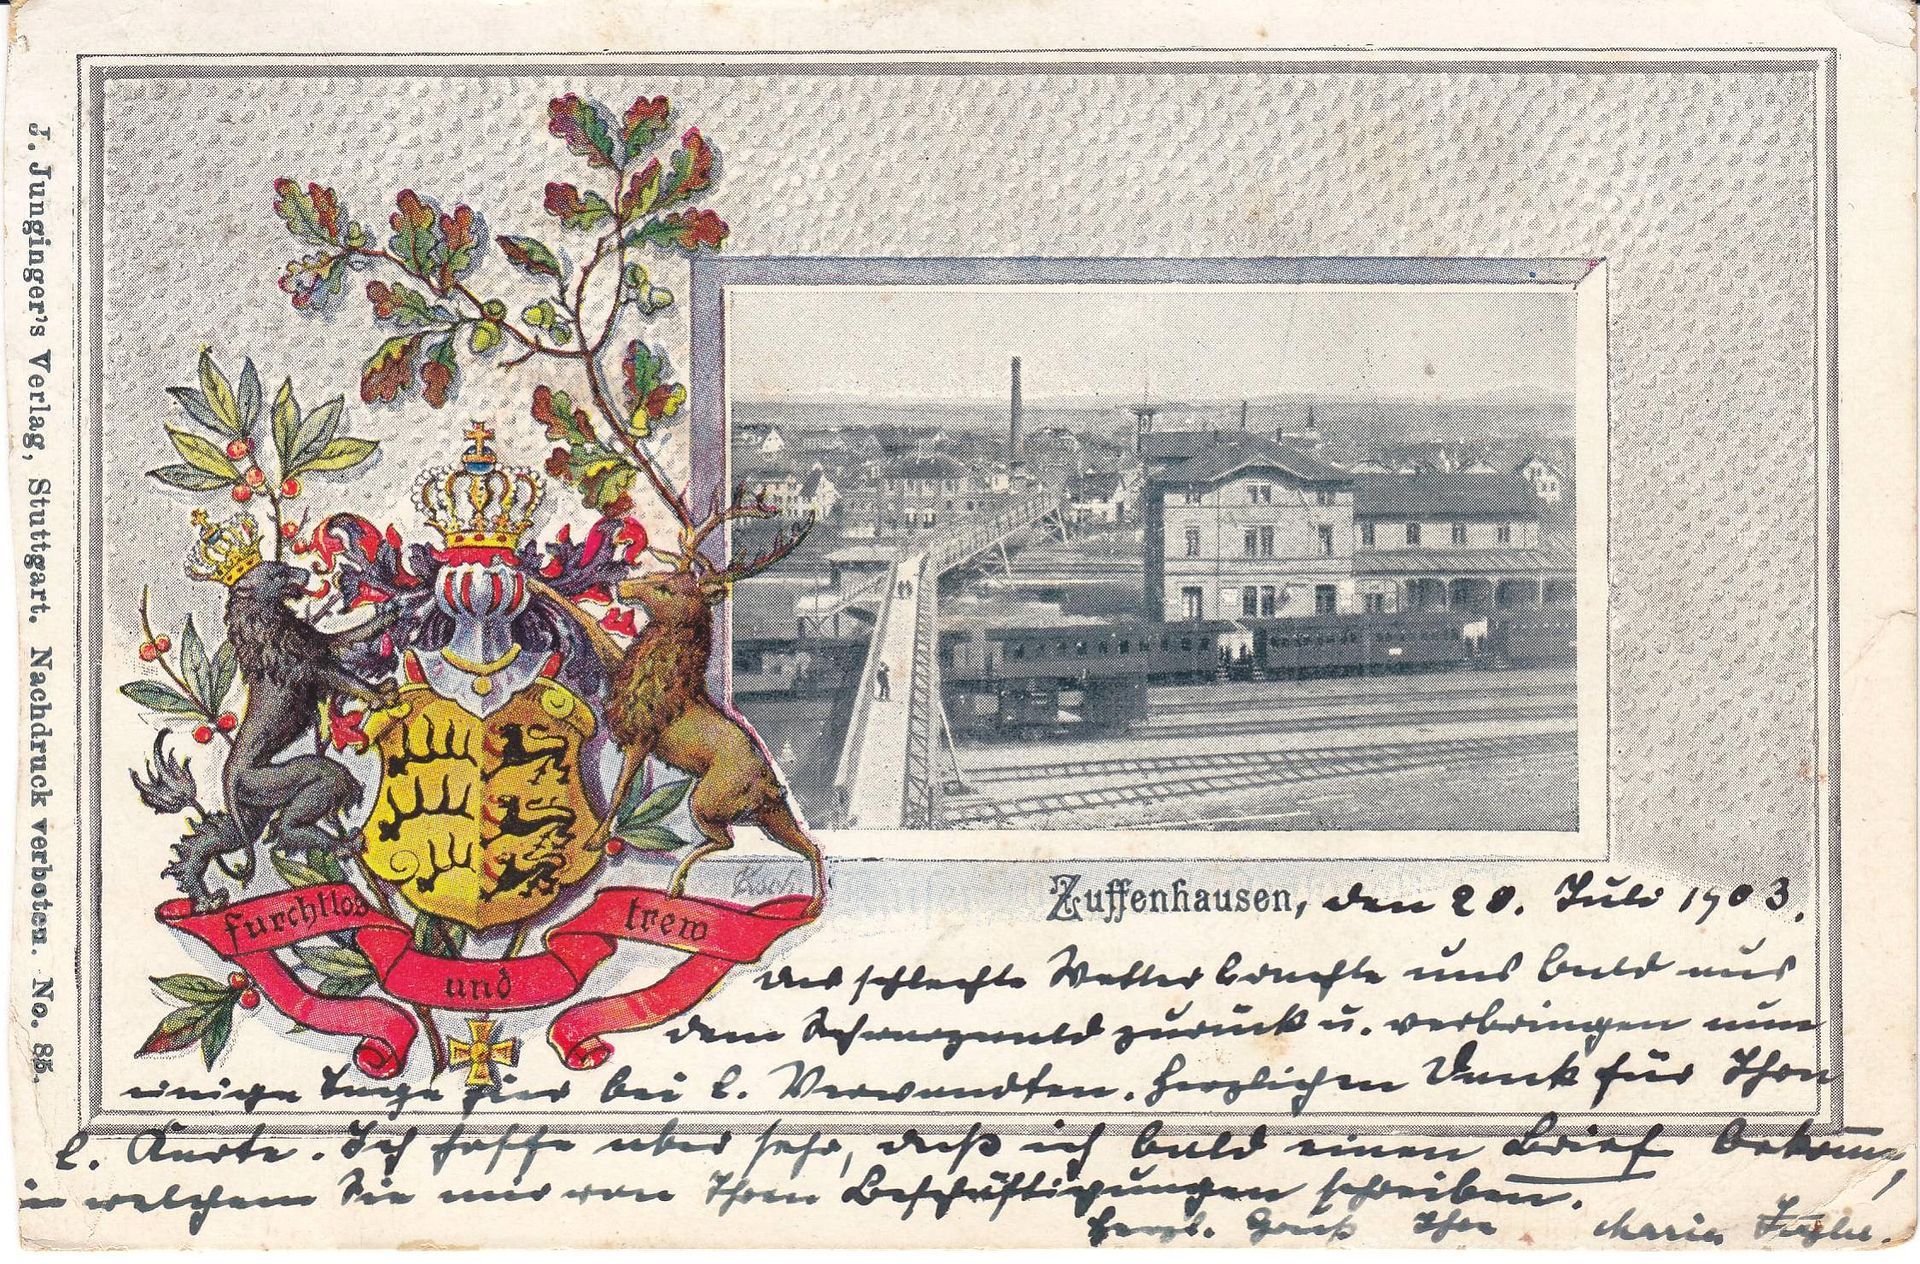 J. Junginger's Verlag, Stuttgart. Nachdruck verboten. No. 85.
furchtlos
und
trew
Koch.
Zuffenhausen, den 20. Juli 1903.
das schlechte Wetter brachte uns bald aus
dem Schwarzwald zurück u. verbringen nun
einige Tage hier bei l. Verwandten. Herzlichen Dank für Ihre
l. Karte. Ich hoffe aber sehr, daß ich bald einen Brief bekomme,
in welchem Sie mir von Ihren Beschäftigungen schreiben.
Herzl. Gruß Ihre Maria